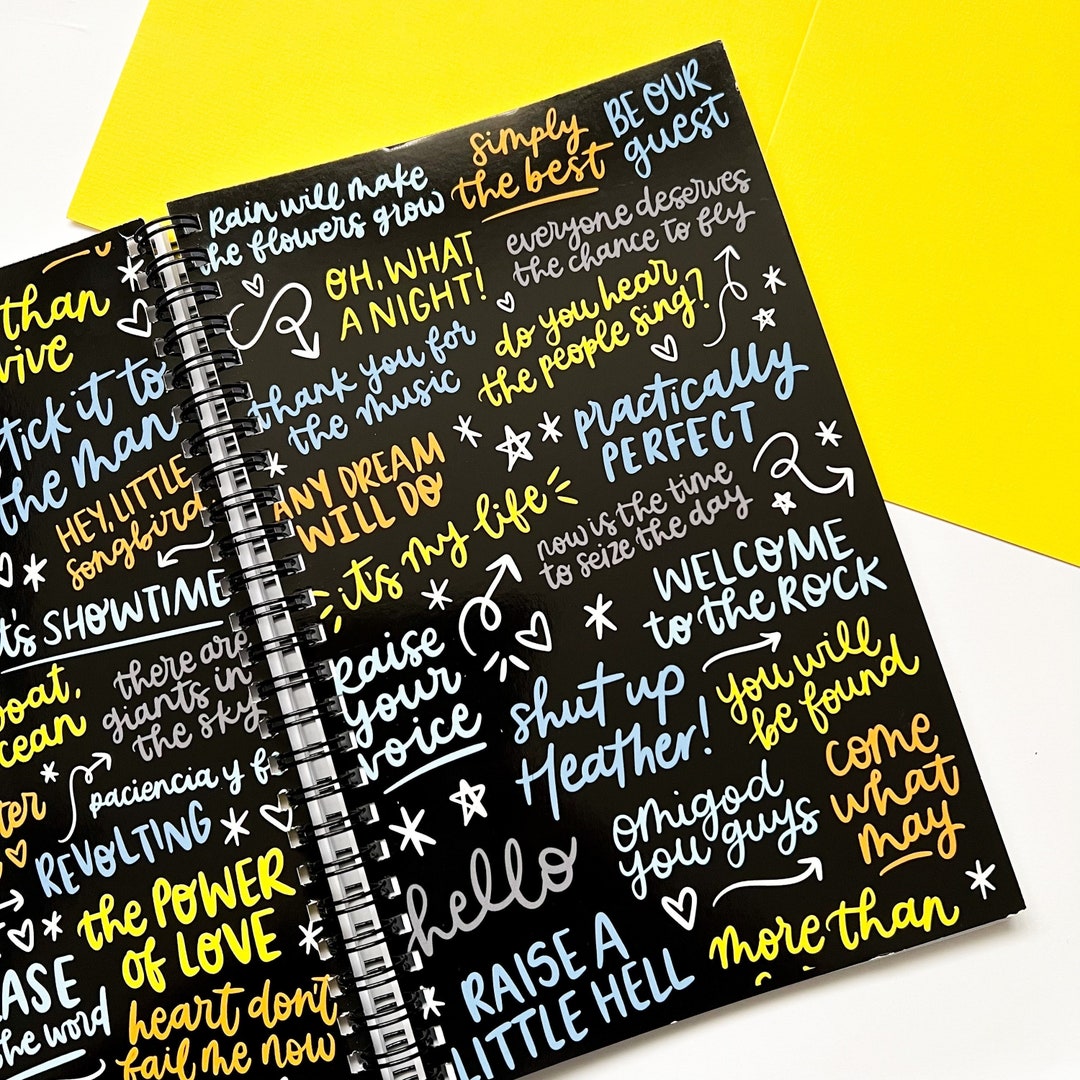 than
vive
tick it to
the man
HEY, LITTLE
songbird
it's SHOWTIME
there are
giants in
the sky
boat,
ocean
paciencia y f
REVOLTING
the POWER
of LOVE
EASE
the word
heart don't
fail me now
Rain will make
the flowers grow
simply
the best
BE OUR
guest
OH, WHAT
A NIGHT!
everyone deserves
the chance to fly
thank you for
the music
do you hear
the people sing?
ANY DREAM
WILL DO
practically
PERFECT
it's my life
now is the time
to seize the day
WELCOME
to the ROCK
Raise
your
voice
shut up
Heather!
you will
be found
come
what
may
omigod
you guys
hello
RAISE A
LITTLE HELL
more than